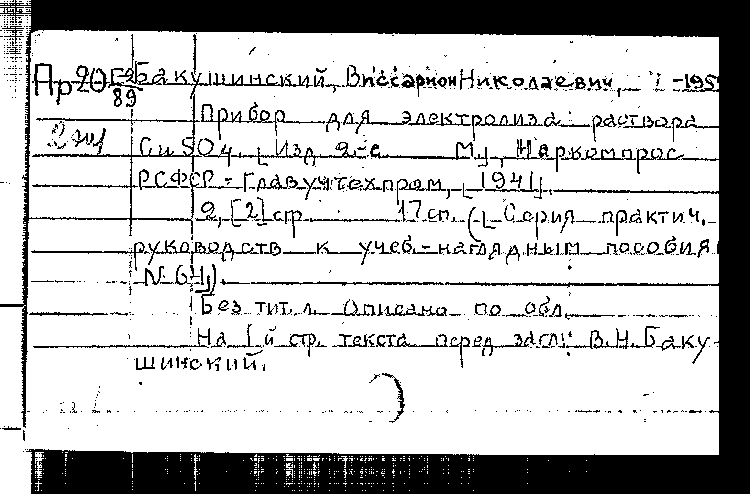 Пр 20 Г-2 Бакушинский, Виссарион Николаевич, -195
89
Прибор для электролиза раствора
2 экз
CuSO4. [Изд. 2-е. М.], Наркомпрос
РСФСР - Главучтехпром, [1941].
2, [2] стр. 17 см. ([Серия практич.
руководств к учеб.-наглядным пособия
N 64]).
Без тит. л. Описано по обл.
На 1й стр. текста перед загл: В.Н. Баку-
шинский.